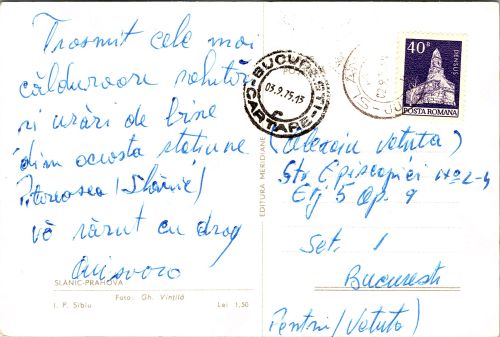 Trasmit cele mai
călduroase salutări
și urări de bine
din aceasta stațiune
(Slănic)
vă sărut cu drag
SLĂNIC-PRAHOVA
Foto: Gh. Vintilă
I. P. Sibiu
Lei 1,50
EDITURA MERIDIANE
BUCUREȘTI
03.9.75.13
CARTARE
40 B
DENSUȘ
POSTA ROMANA
(Alexiu Vetuta)
Str. Episcopiei No 2-4
Etj 5 Ap. 9
Set. 1
București
Pentru (Vetuta)